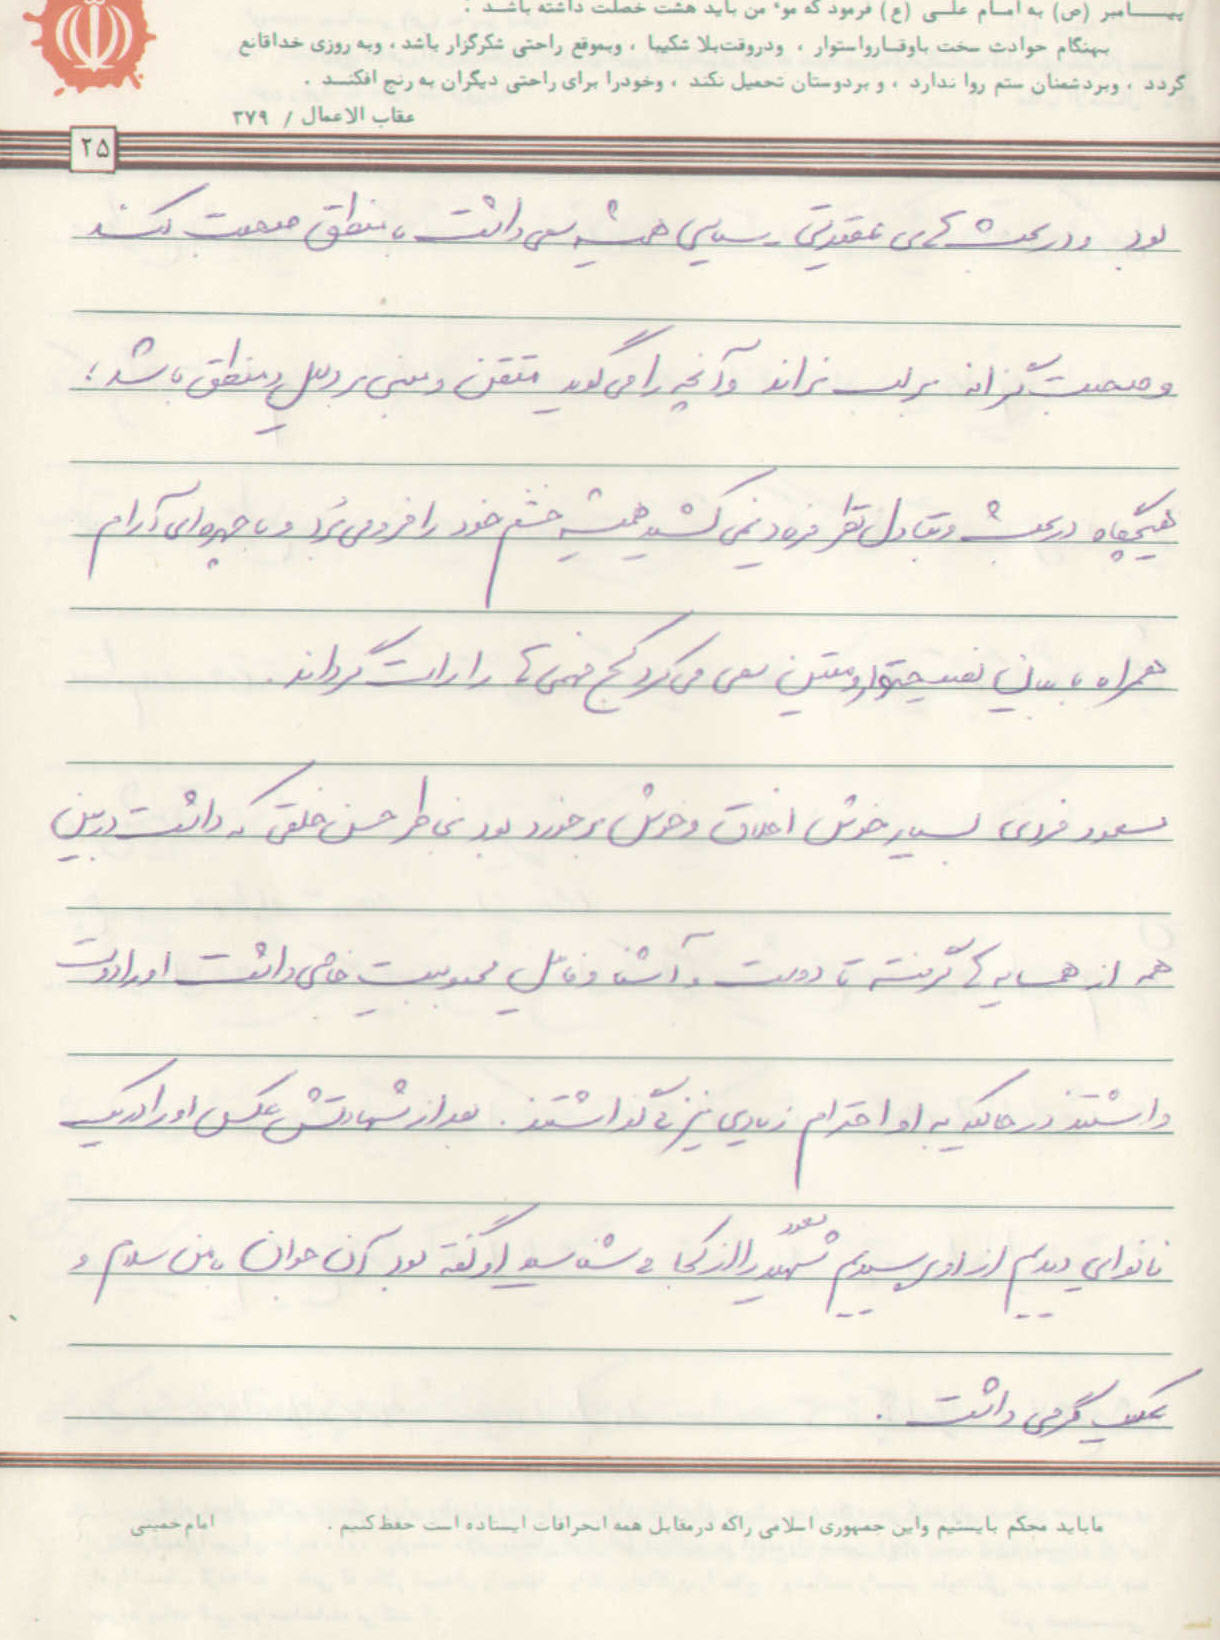 پیامبر (ص) به امام علی (ع) فرمود که موٴمن باید هشت خصلت داشته باشد :
بهنگام حوادث سخت باوقارواستوار ، ودروقت‌بلا شکیبا ، وبموقع راحتی شکرگزار باشد ، وبه روزی خداقانع
گردد ، وبردشمنان ستم روا ندارد ، و بردوستان تحمیل نکند ، وخودرا برای راحتی دیگران به رنج افکند .
عقاب الاعمال / ۳۷۹
۲۵
بود و در بحث های عقیدتی ـ سیاسی همیشه سعی داشت با منطق صحبت کند
و صحبت گزافه بر لب نراند و آنچه را می گوید متقن و مبنی بر دلیل و منطق باشد ؛
هیچگاه در بحث و تبادل نظر نمی کشید همیشه خشم خود را فرو می بُرد و با چهره ای آرام
همراه با بیانی و متین سعی می کرد کج فهمی ها را راست گرداند .
مسعود فردی بسیار خوش اخلاق و خوش برخورد بود بخاطر حسن خلقی که داشت در بین
همه از همسایه ها گرفته تا دوست و آشنا و فامیل محبوبیت خاصی داشت او را دوست
داشتند در حالیکه به او احترام زیادی نیز می گذاشتند . بعد از شهادتش عکس او را در یک
نانوایی دیدیم از او پرسیدیم شهید مسعود را از کجا می شناسید او گفته بود آن جوان با من سلام و
علیک گرمی داشت .
ماباید محکم بایستیم واین جمهوری اسلامی راکه درمقابل همه انحرافات ایستاده است حفظ کنیم . امام خمینی